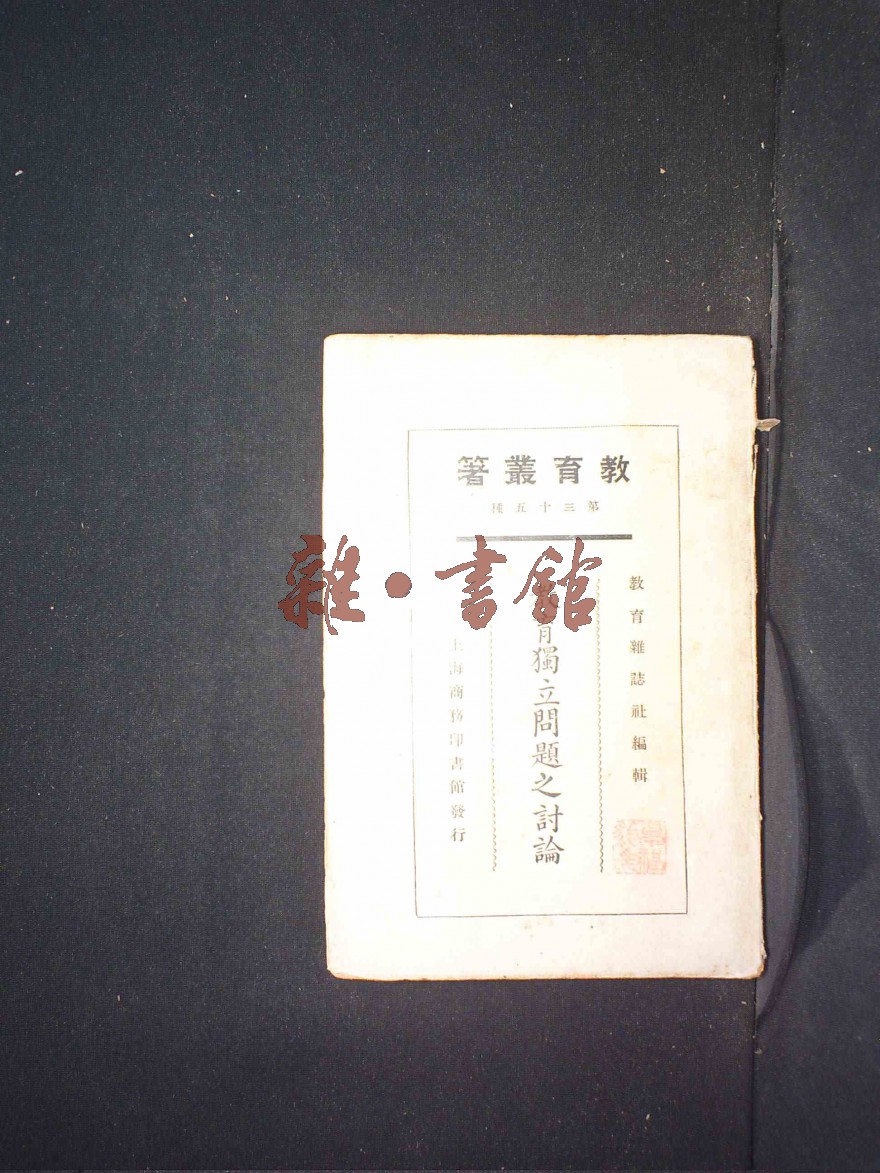 教育叢著
第三十五種
教育雜誌社編輯
育獨立問題之討論
上海商務印書館發行
雜·書館